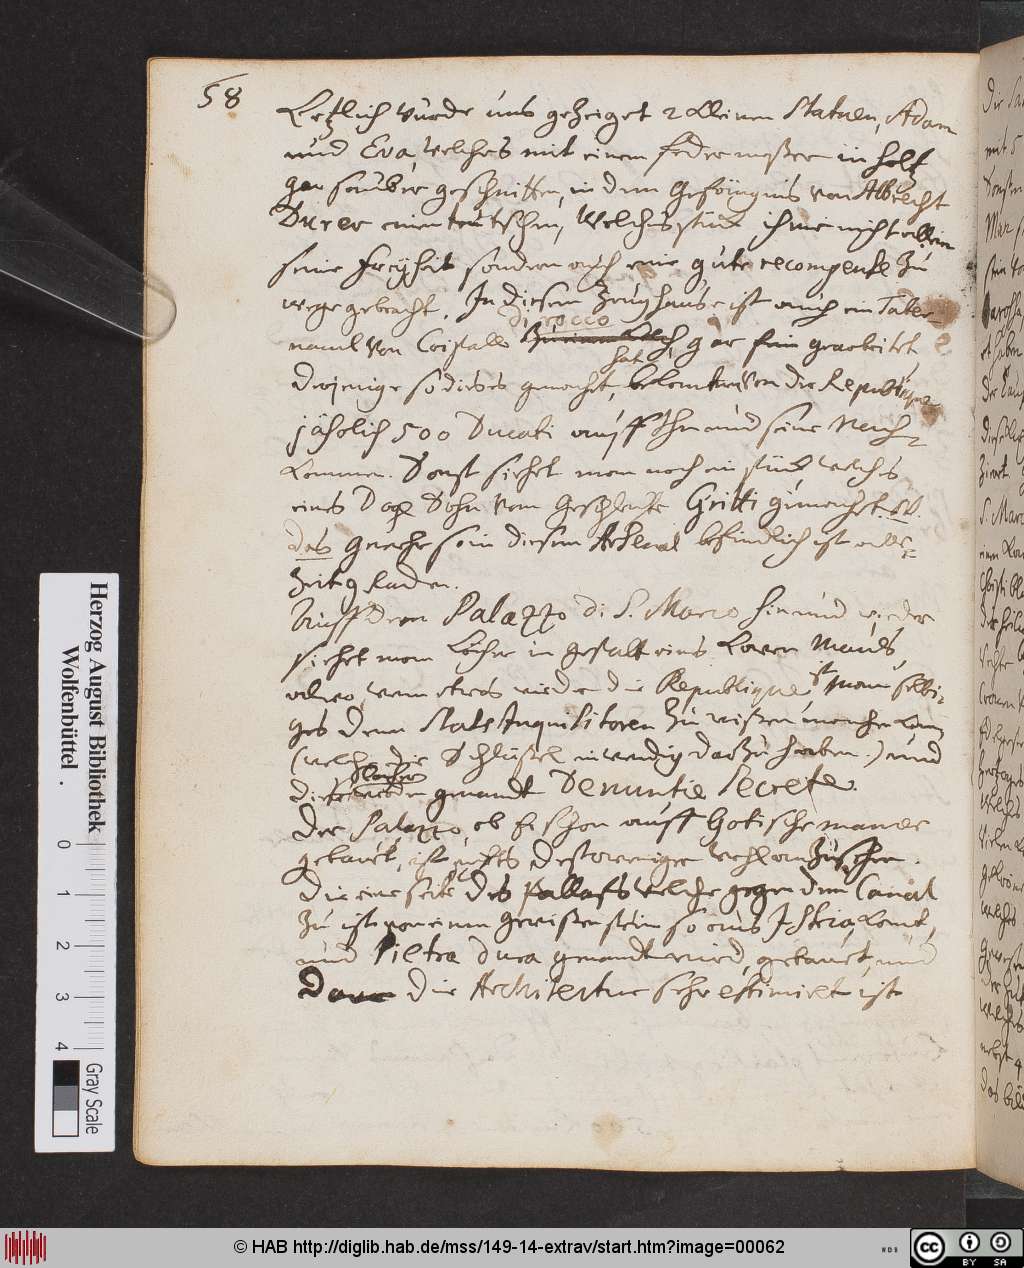 58
Letzlich wurde uns gezeiget 2 kleinen Statuen, Adam
und Eva, welches mit einem feder meßer in holtz
gar sauber geschnitten, in dem Gefängnis von Albrecht
Durer einem teutschen, Welches stück ihme nicht allein
seine Freyheit sondern auch eine gute recompense zu
wege gebracht. In diesem Zeughause ist auch ein Taber-
nacul von Cristallo
di rocco
gar fein gearbeitet
hat
derjenige so dieses gemacht, bekomt von der Republique
jährlich 500 Ducati auff Ihn und seine Nach-
kommen. Sonst siehet man noch ein stück welches
eines Doge Sohn vom Geschlechte Gritti gemacht.
das Gewehr so in diesem Arsenal befindlich ist alle-
zeit geladen.
Auff dem Palazzo di S. Marco hin und wieder
siehet man Löcher in gestalt eines Löwen Mauls,
alwo, wenn etwas wieder die Republique ist, man selbi-
ges denen Stats Inquisitoren zu wißen machen kan
(welche die Schlüßel inwendig darzu haben.) und
diese werden genandt Denuntie Secrete.
Der Palazzo, ob er schon auff Gotische manier
gebauet, ist nichts destoweniger wohl anzusehen.
Die eine seite des Pallasts welche gegen dem Canal
zu ist von einem gewißen stein so aus Istria kömt,
und Pietra dura genandt wird, gebauet, und
die Architectur sehr estimiret ist
Herzog August Bibliothek
Wolfenbüttel.
0
1
2
3
4
Gray Scale
© HAB http://diglib.hab.de/mss/149-14-extrav/start.htm?image=00062
cc
BY SA